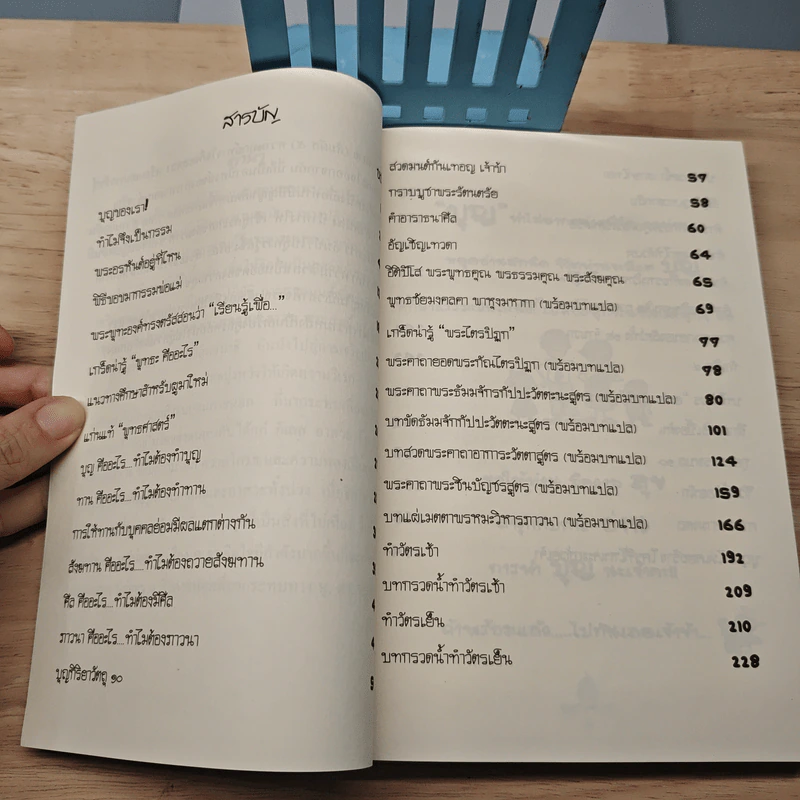 สารบัญ
บุญของเรา!
ทำไมจึงเป็นกรรม
พระอรหันต์อยู่ที่ไหน
พิธีขอขมากรรมพ่อแม่
พระพุทธองค์ทรงตรัสสอนว่า “เรียนรู้เพื่อ...”
เกร็ดน่ารู้ “พุทธะ คืออะไร”
แนวทางศึกษาสำหรับผู้มาใหม่
แก่นแท้ “พุทธศาสตร์”
บุญ คืออะไร...ทำไมต้องทำบุญ
ทาน คืออะไร...ทำไมต้องทำทาน
การให้ทานกับบุคคลย่อมมีผลแตกต่างกัน
สังฆทาน คืออะไร...ทำไมต้องถวายสังฆทาน
ศีล คืออะไร...ทำไมต้องมีศีล
ภาวนา คืออะไร...ทำไมต้องภาวนา
บุญกิริยาวัตถุ ๑๐
สวดมนต์กันเทอญ เจ้าข้า 57
กราบบูชาพระรัตนตรัย 58
คำอาราธนาศีล 60
อัญเชิญเทวดา 64
อิติปิโส พระพุทธคุณ พรธรรมคุณ พระสังฆคุณ 65
พุทธชัยมงคลคา พาหุงมหากา (พร้อมบทแปล) 69
เกร็ดน่ารู้ “พระไตรปิฎก” 77
พระคาถายอดพระกัณไตรปิฎก (พร้อมบทแปล) 78
พระคาถาพระธัมมจักรกัปปะวัตตะนะสูตร (พร้อมบทแปล) 80
บทขัดธัมมจักกัปปะวัตตะนะสูตร (พร้อมบทแปล) 101
บทสวดพระคาถาอาการะวัตตาสูตร (พร้อมบทแปล) 124
พระคาถาพระชินบัญชรสูตร (พร้อมบทแปล) 159
บทแผ่เมตตาพรหมะวิหารภาวนา (พร้อมบทแปล) 166
ทำวัตรเช้า 192
บทกรวดน้ำทำวัตรเช้า 209
ทำวัตรเย็น 210
บทกรวดน้ำทำวัตรเย็น 228